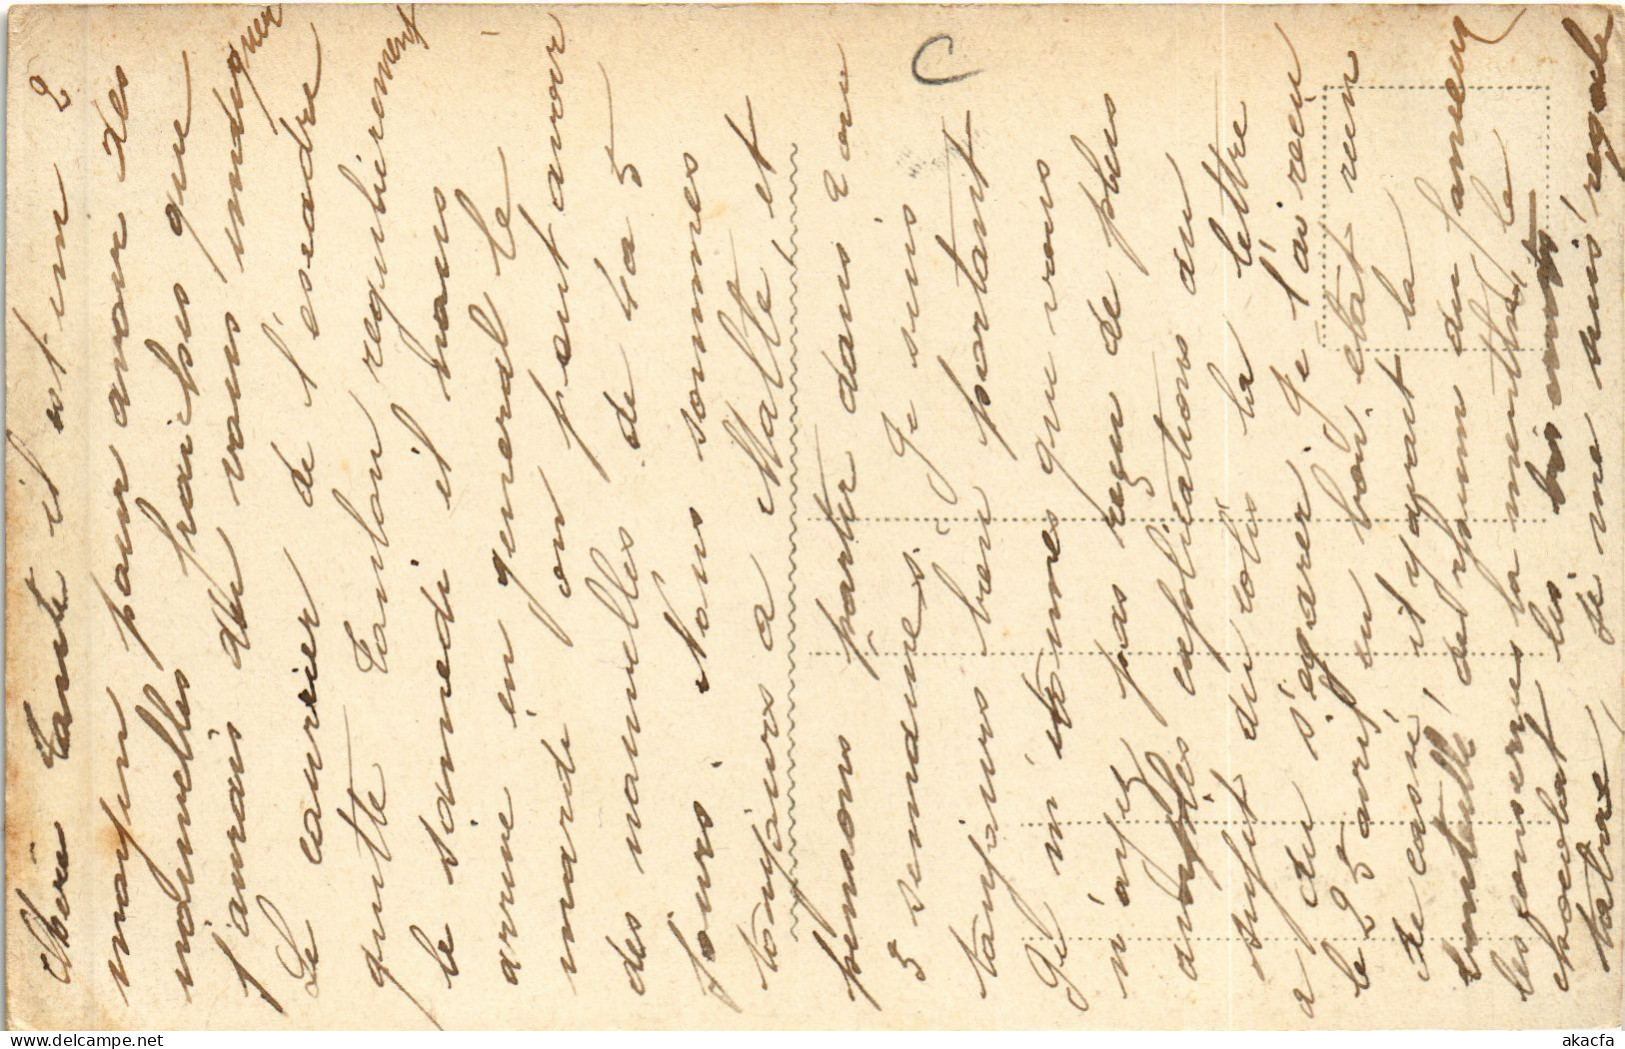 Chère tante il est un 2
moyen pour avoir des
nouvelles fraiches que
j'aurais du vous indiquer
Le courrier de l'escadre
quitte Toulon regulièrement
le samedi il nous
arrive en general le
mardi on peut avoir
des nouvelles de 4 a 5
jours. Nous sommes
toujours a Malte et
pensons partir dans 2 ou
3 semaines. Je suis
toujours bien portant
Je m'étonnes que vous
n'ayez pas reçu de plus
amples explications du
sujet du colis la lettre
a du s'égarer. Je l'ai reçu
le 25 avril en bon état rien
de cassé il y avait la
bouteille de rhum du
les conserves la menthe, le
chocolat les biscuits
tabac Je me suis régale
C
akacfa